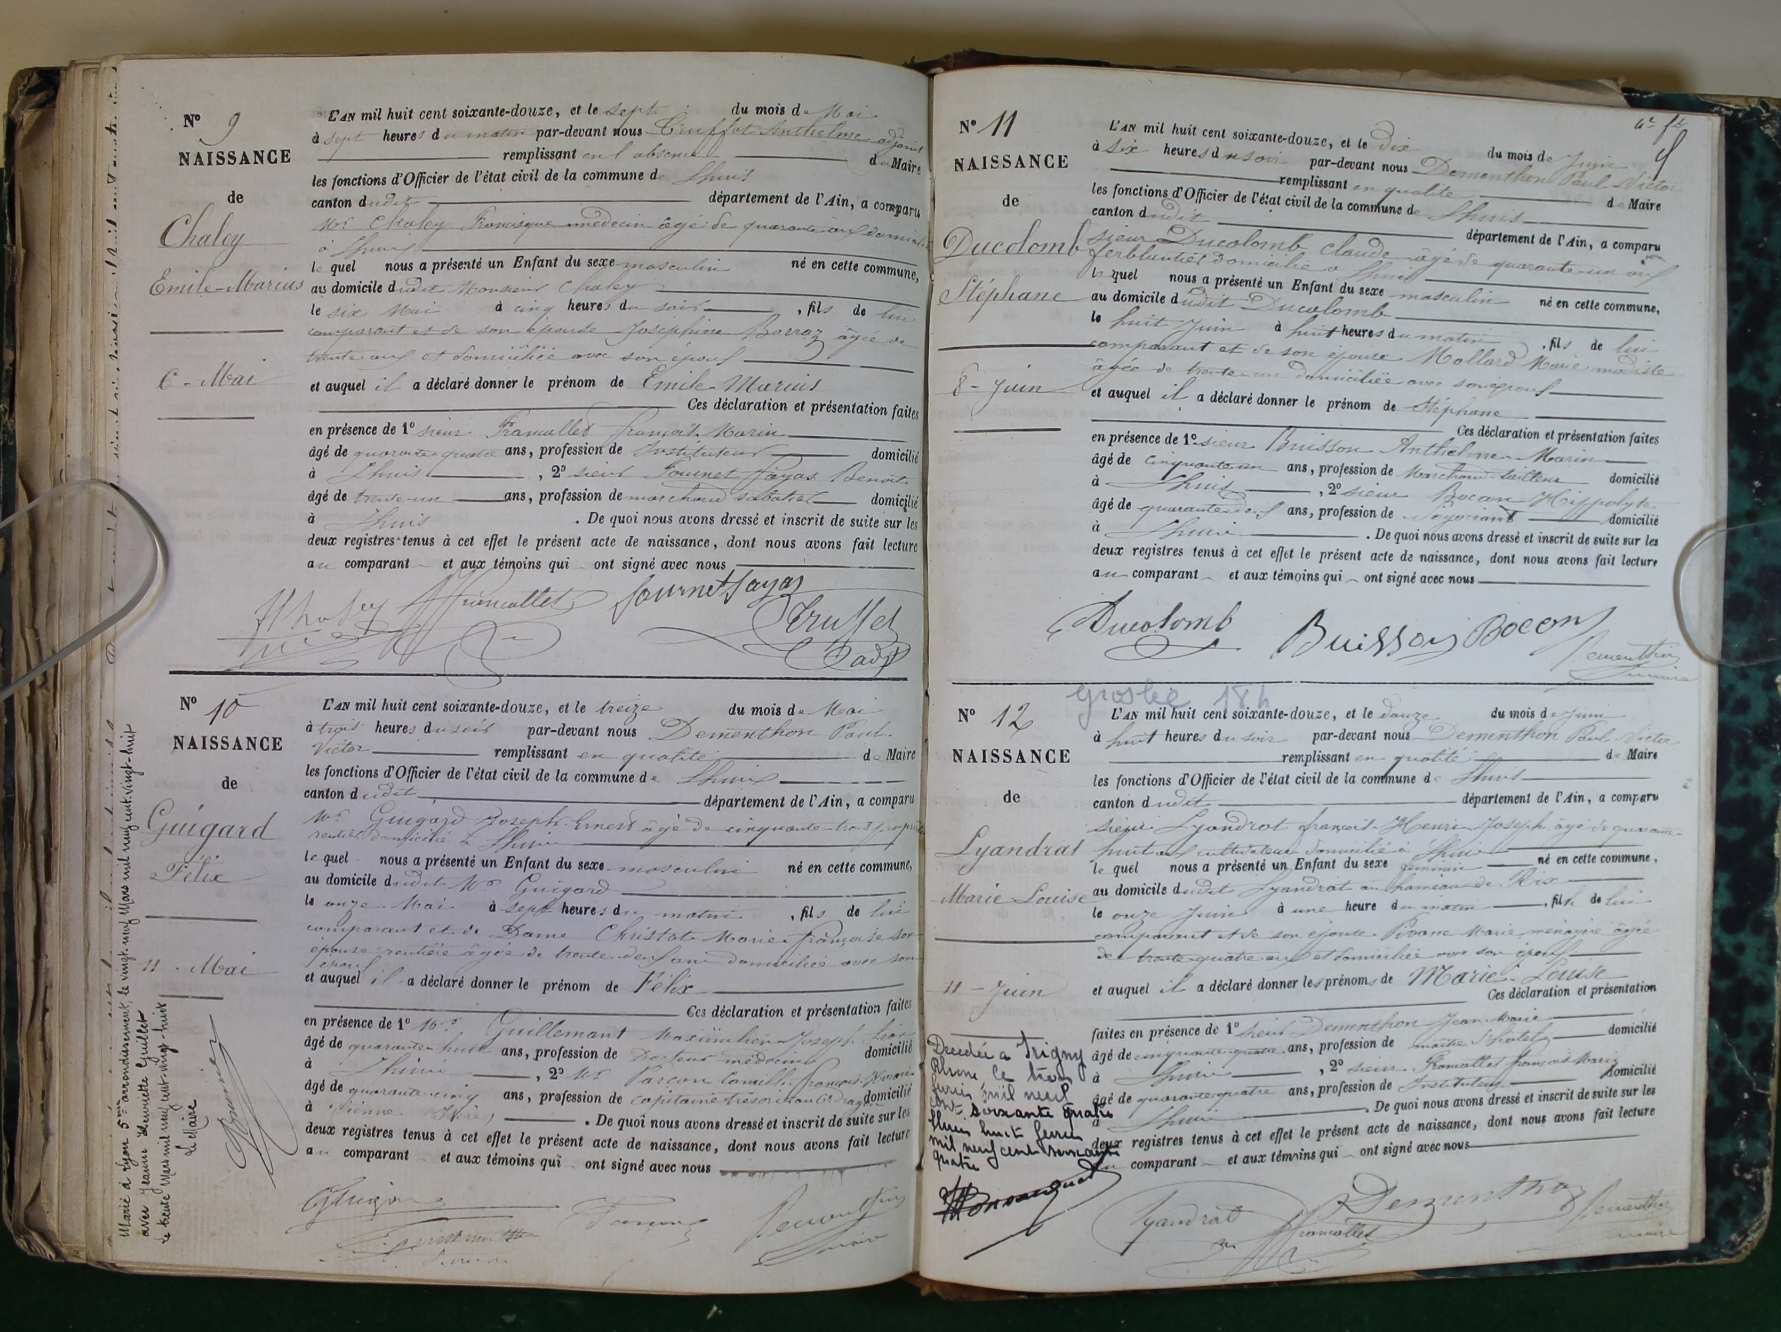 N° 9
NAISSANCE
de
Chaley
Emile-Marius
6 - Mai
L'AN mil huit cent soixante-douze, et le sept du mois de Mai
à sept heures du matin par-devant nous Truffet Anthelme adjoint
remplissant en l'absence du Maire
les fonctions d'Officier de l'état civil de la commune de Lhuis
canton dudit département de l'Ain, a comparu
Mr Chaley Francisque médecin âgé de quarante ans domicilié
à Lhuis
le quel nous a présenté un Enfant du sexe masculin né en cette commune,
au domicile dudit Monsieur Chaley
le six Mai à cinq heures du soir, fils de lui
comparant et de son épouse Joséphine Borroz âgée de
trente ans et domiciliée avec son époux
et auquel il a déclaré donner le prénom de Emile-Marius
Ces déclaration et présentation faites
en présence de 1° sieur Framollet françois Marin
âgé de quarante quatre ans, profession de Instituteur domicilié
à Lhuis, 2° sieur Journet Benoit
âgé de trente-un ans, profession de marchand domicilié
à Lhuis. De quoi nous avons dressé et inscrit de suite sur les
deux registres tenus à cet effet le présent acte de naissance, dont nous avons fait lecture
au comparant et aux témoins qui ont signé avec nous
Truffet
N° 10
NAISSANCE
de
Guigard
Félix
11 - Mai
Marié à Lyon 5me arrondissement, le vingt-neuf Mars mil neuf cent-vingt-huit
avec Jeanne Henriette Guillet
le trente Mars mil neuf cent-vingt-huit
Le Maire
L'AN mil huit cent soixante-douze, et le treize du mois de Mai
à trois heures du soir par-devant nous Dementhon Paul
Victor remplissant en qualité de Maire
les fonctions d'Officier de l'état civil de la commune de Lhuis
canton dudit département de l'Ain, a comparu
Mr Guigard Joseph-Ernest âgé de cinquante-trois
rentier domicilié à Lhuis
le quel nous a présenté un Enfant du sexe masculin né en cette commune,
au domicile dudit Mr Guigard
le onze Mai à sept heures du matin, fils de lui
comparant et de Dame Christot Marie françoise son
épouse rentière âgée de trente-deux ans domiciliée avec son
époux
et auquel il a déclaré donner le prénom de Félix
Ces déclaration et présentation faites
en présence de 1° Mr Guillemant Maximilien Joseph
âgé de quarante-huit ans, profession de Docteur médecin domicilié
à Lhuis, 2° Mr françois
âgé de quarante cinq ans, profession de capitaine trésorier domicilié
à Vienne (Isère). De quoi nous avons dressé et inscrit de suite sur les
deux registres tenus à cet effet le présent acte de naissance, dont nous avons fait lecture
au comparant et aux témoins qui ont signé avec nous
N° 11
NAISSANCE
de
Ducolomb
Stéphane
8 - Juin
L'AN mil huit cent soixante-douze, et le dix du mois de Juin
à six heures du soir par-devant nous Dementhon Paul Victor
remplissant en qualité de Maire
les fonctions d'Officier de l'état civil de la commune de Lhuis
canton dudit département de l'Ain, a comparu
sieur Ducolomb Claude âgé de quarante-un ans
ferblantier domicilié à Lhuis
le quel nous a présenté un Enfant du sexe masculin né en cette commune,
au domicile dudit Ducolomb
le huit Juin à huit heures du matin, fils de lui
comparant et de son épouse Mollard Marie modiste
âgée de trente-un domiciliée avec son époux
et auquel il a déclaré donner le prénom de Stéphane
Ces déclaration et présentation faites
en présence de 1° sieur Buisson Anthelme Marin
âgé de cinquante un ans, profession de Marchand-tailleur domicilié
à Lhuis, 2° sieur Bocon Hippolyte
âgé de quarante-deux ans, profession de Négociant domicilié
à Lhuis. De quoi nous avons dressé et inscrit de suite sur les
deux registres tenus à cet effet le présent acte de naissance, dont nous avons fait lecture
au comparant et aux témoins qui ont signé avec nous
Ducolomb Buisson Bocon Dementhon
maire
Groslée
N° 12
NAISSANCE
de
Lyandrat
Marie Louise
11 - Juin
Décédée à Irigny
Rhône le trois
février mil neuf
cent soixante quatre
Lhuis huit février
mil neuf cent soixante
quatre
L'AN mil huit cent soixante-douze, et le douze du mois de Juin
à huit heures du soir par-devant nous Dementhon Paul Victor
remplissant en qualité de Maire
les fonctions d'Officier de l'état civil de la commune de Lhuis
canton dudit département de l'Ain, a comparu
sieur Lyandrat françois-Henri-Joseph âgé de quarante-
huit ans cultivateur domicilié à Lhuis
le quel nous a présenté un Enfant du sexe féminin né en cette commune,
au domicile dudit Lyandrat au hameau de Rix
le onze Juin à une heure du matin, fille de lui
comparant et de son épouse Marie ménagère âgée
de trente-quatre ans et domiciliée avec son époux
et auquel il a déclaré donner les prénoms de Marie-Louise
Ces déclaration et présentation
faites en présence de 1° sieur Dementhon Jean-Marie domicilié
âgé de cinquante quatre ans, profession de maître d'hôtel
à Lhuis, 2° sieur Framollet françois Marin domicilié
âgé de quarante quatre ans, profession de Instituteur
à Lhuis. De quoi nous avons dressé et inscrit de suite sur les
deux registres tenus à cet effet le présent acte de naissance, dont nous avons fait lecture
au comparant et aux témoins qui ont signé avec nous
Lyandrat Framollet Dementhon Dementhon
maire